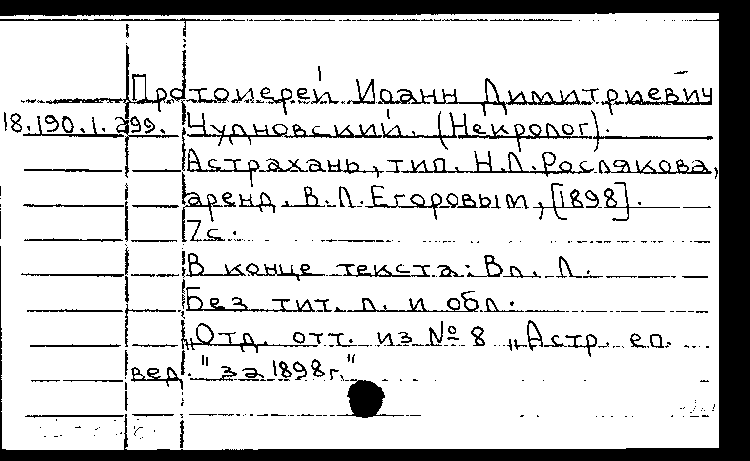 Протоиерей Иоанн Димитриевич
18.190.1.299. Чудновский. (Некролог).
Астрахань, тип. Н.Л.Рослякова,
аренд. В.Л.Егоровым, [1898].
7с.
В конце текста: Вл. Л.
Без тит. л. и обл.
„Отд. отт. из № 8 „Астр. еп.
вед." за 1898г."